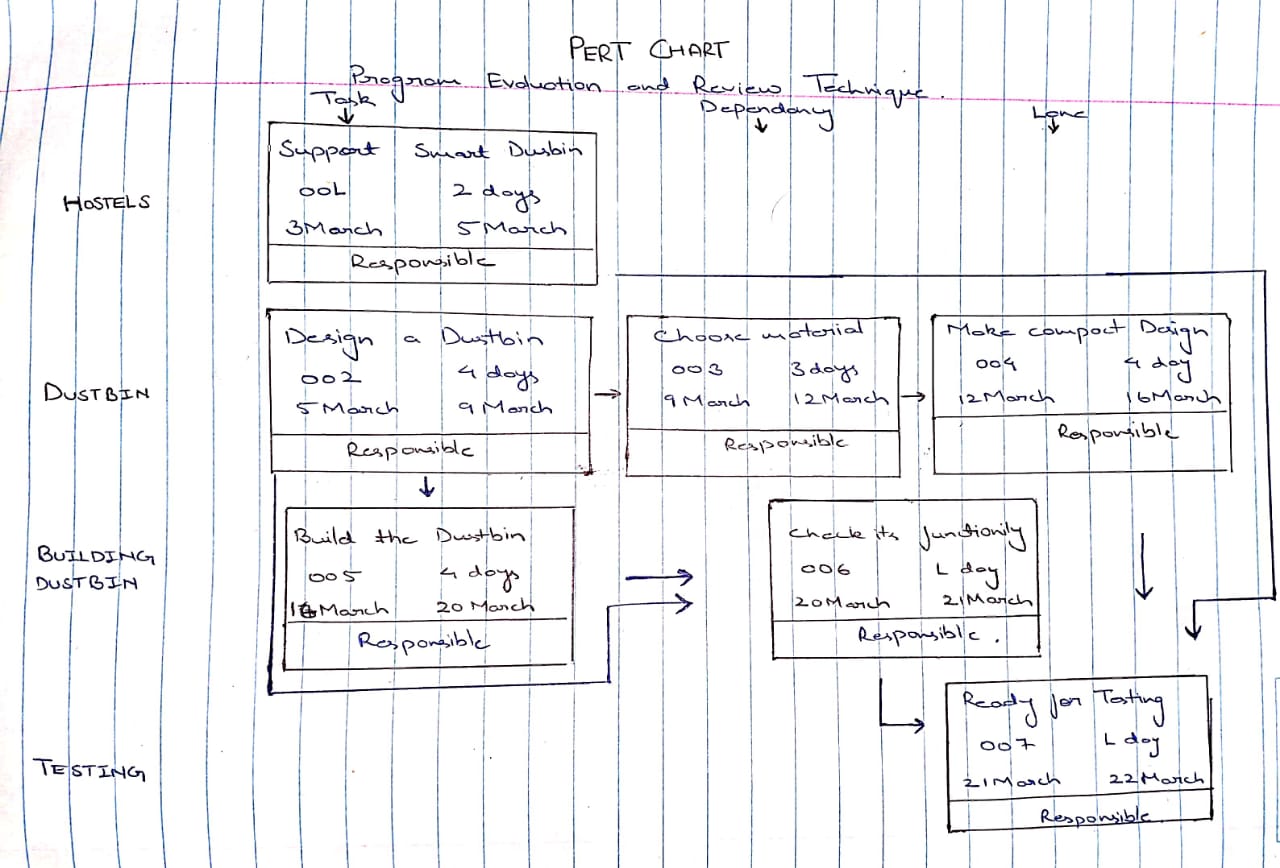 PERT CHART
Program Evaluation and Review Technique.
Task
Dependancy
Lane
HOSTELS
Support Smart Dusbin
001 2 days
3 March 5 March
Responsible
DUSTBIN
Design a Dustbin
002 4 days
5 March 9 March
Responsible
Choose material
003 3 days
9 March 12 March
Responsible
Make compact Design
004 4 day
12 March 16 March
Responsible
BUILDING
DUSTBIN
Build the Dustbin
005 4 days
16 March 20 March
Responsible
Check its
006 1 day
20 March 21 March
Responsible.
TESTING
Ready for Testing
007 1 day
21 March 22 March
Responsible